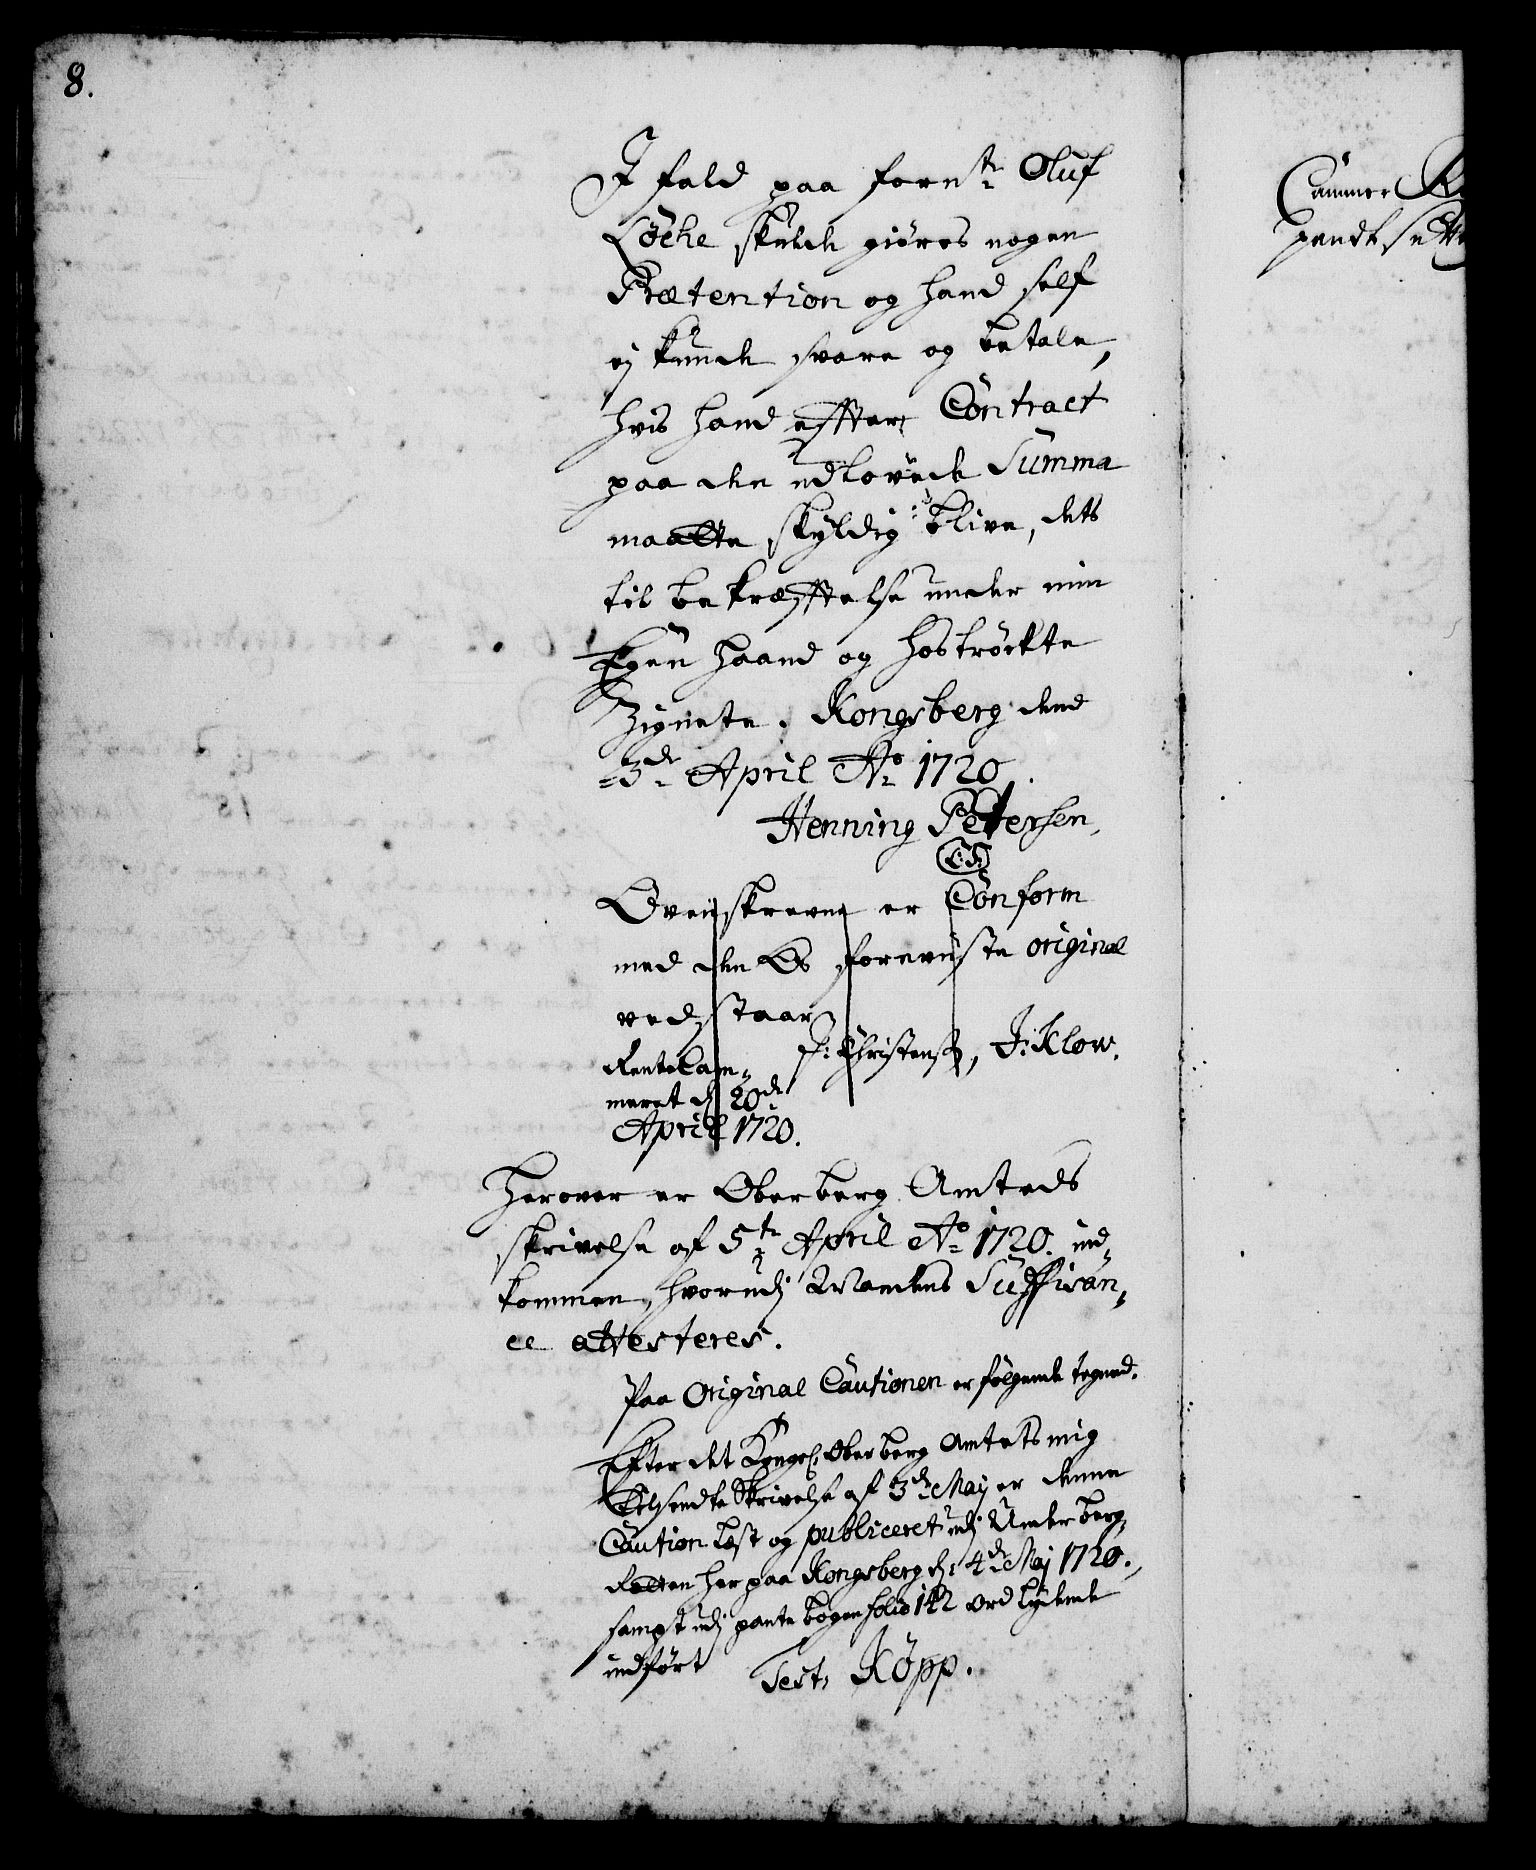 8.
I fald paa fornte Oluf
Löche skulde giöres nogen
Prætention og hand self
ej kunde svare og betale,
hvis hand effter Contract
paa den udlovede Summa
maatte skyldig blive, dets
til bekræfftelse under min
Egen haand og hoströckte
Zignete. Kongsberg dend
3de April Ao 1720.
Henning Pettersen.
(L:S)
Ovenskrevne er Conform
med den Os foreviste original
vedstaar
P: Christensen, J: Klow.
Rentekam-
meret d. 20de
April 1720.
Herover er Oberberg Amteds
skrivelse af 5te April Ao 1720. ind-
kommen, hvorudj Mandens Suffisan-
ce attesteres.
Paa Original Cautionen er følgende tegned.
Efter det Kongel. Oberberg Amtets mig
tilsendte Skrivelse af 3de Maj er denne
Caution læst og publiceret udj Underberg-
Retten her paa Kongsberg d: 4de Maj 1720.,
sampt udj pante bogen folio 142 ord lydende
indført
Test: Köpp.
Cammer